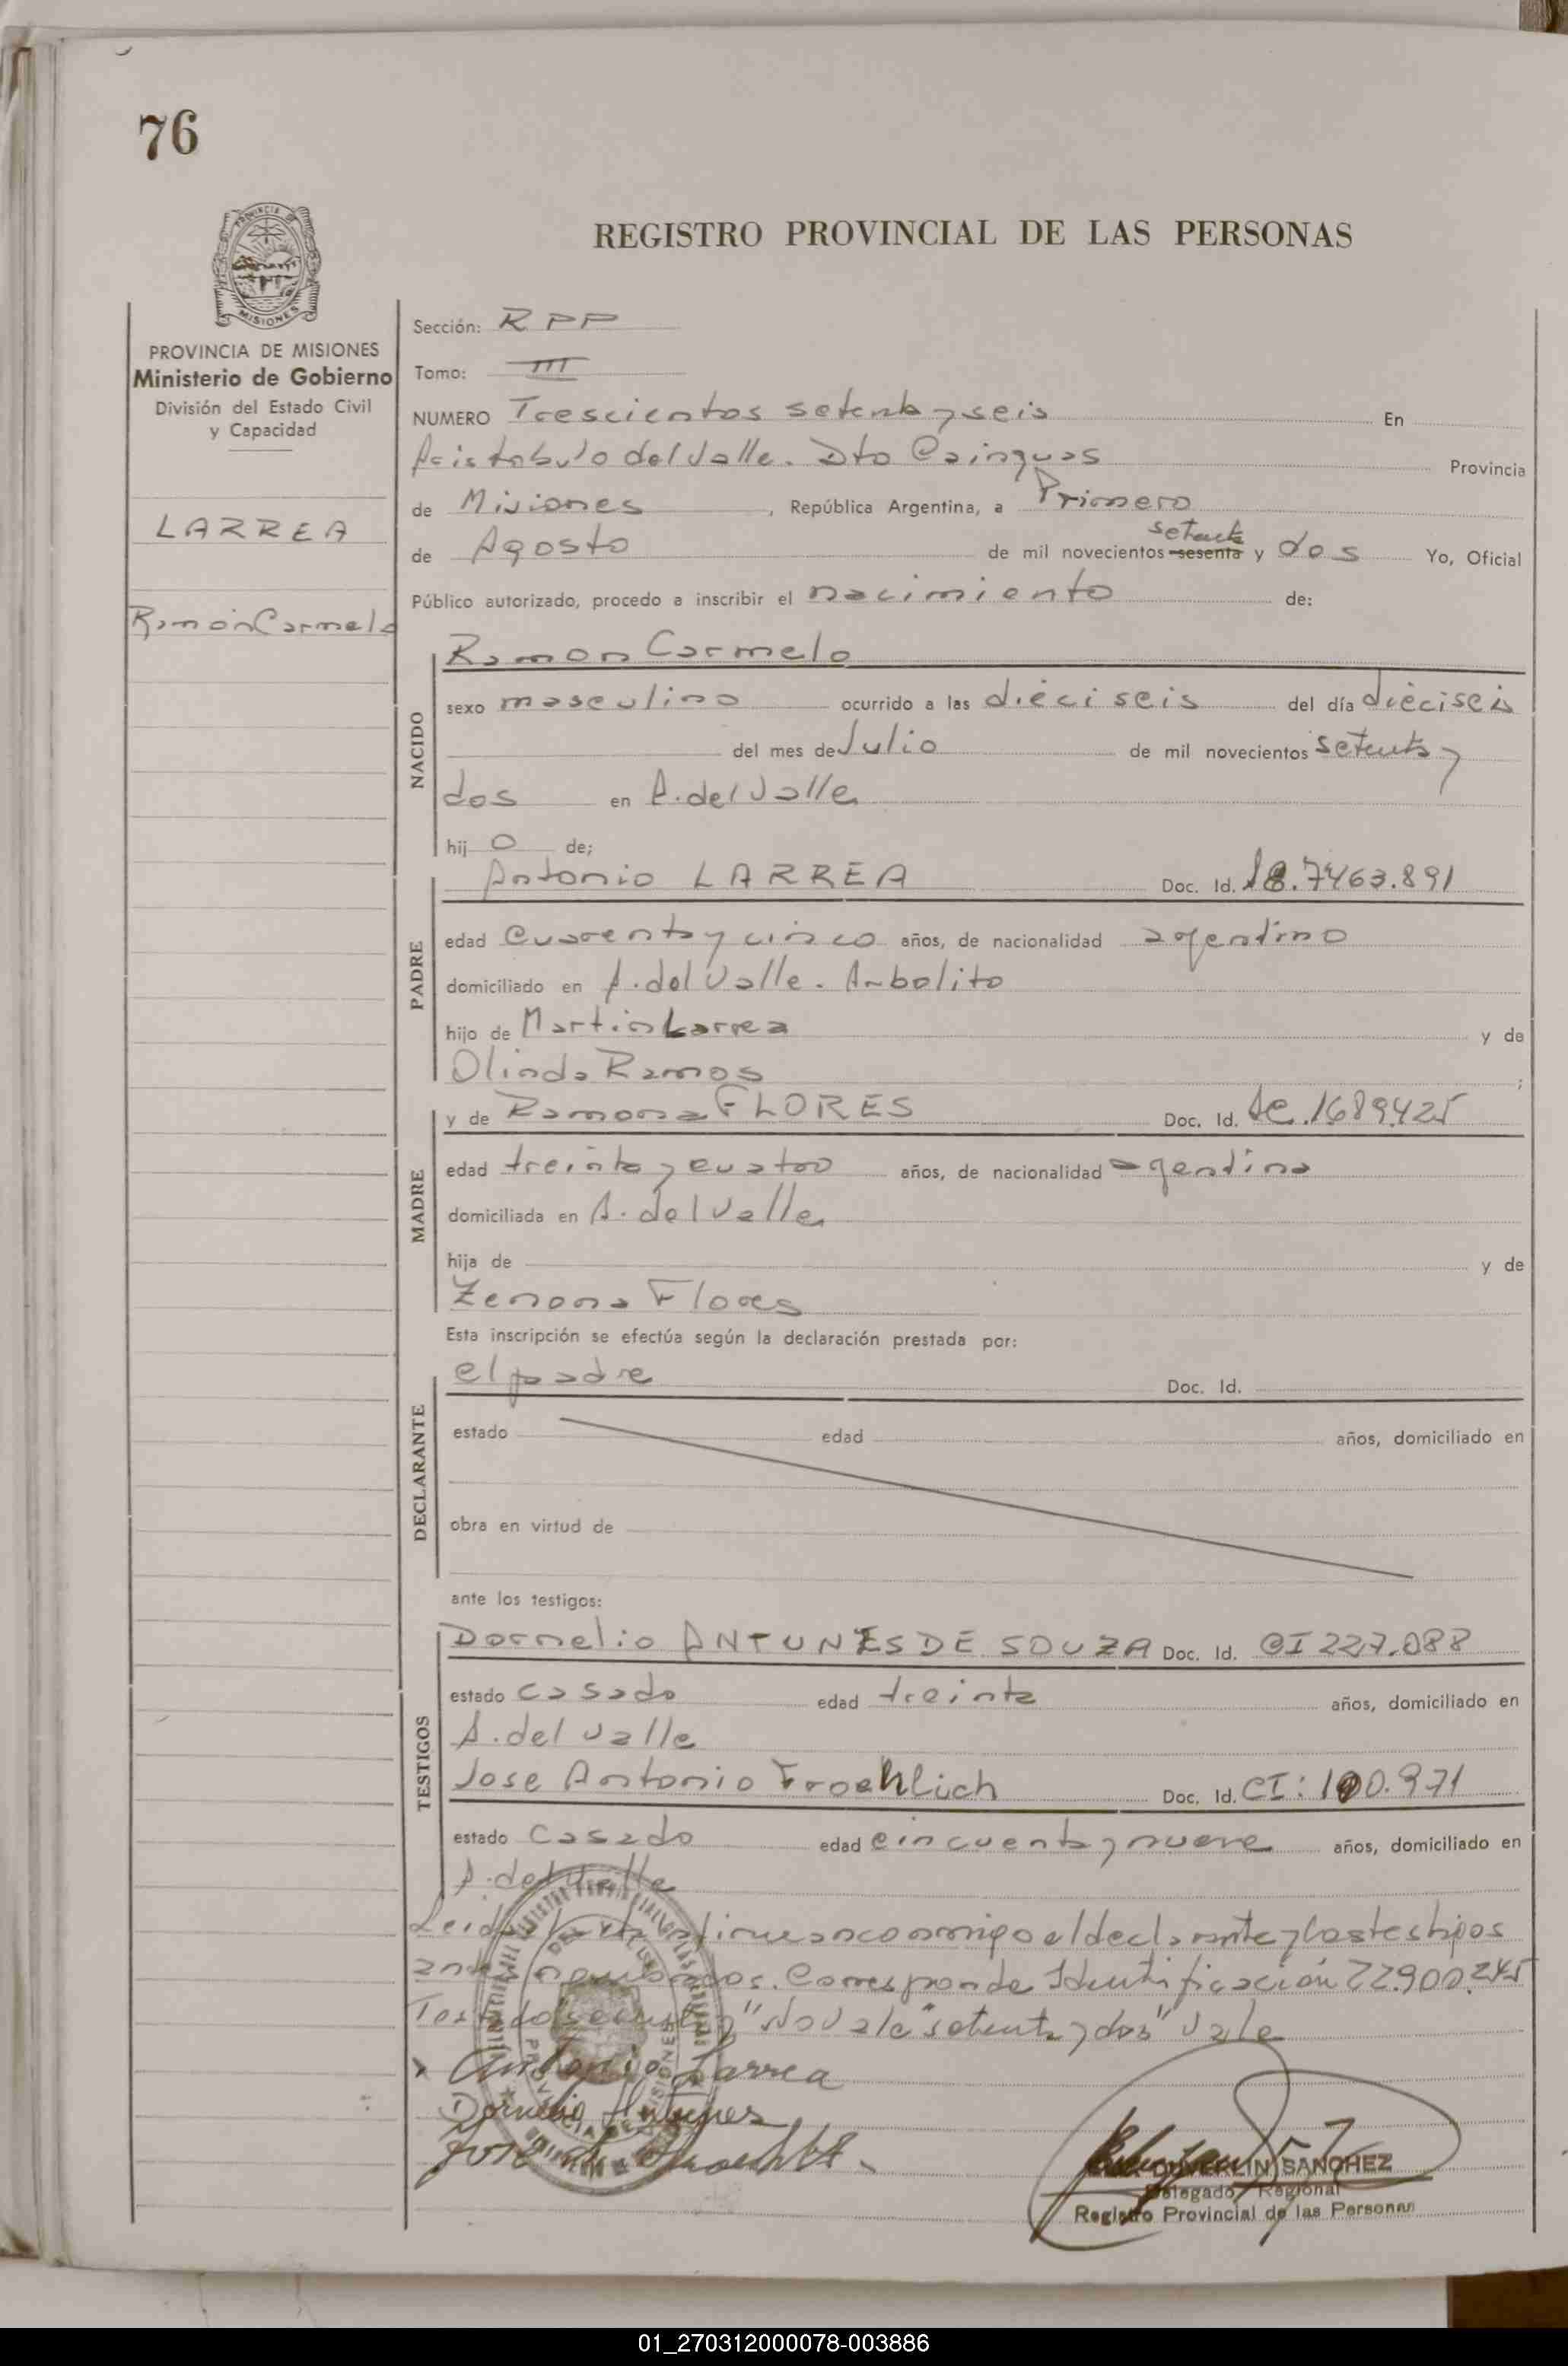 76
PROVINCIA DE
MISIONES
REGISTRO PROVINCIAL DE LAS PERSONAS
PROVINCIA DE MISIONES
Ministerio de Gobierno
División del Estado Civil
y Capacidad
LARREA
Ramón Carmelo
Sección: RPP
Tomo: III
NUMERO Trescientos setenta y seis En
Aristobulo del Valle. Dto Cainguas Provincia
de Misiones, República Argentina, a Primero
setenta
de Agosto de mil novecientos sesenta y dos Yo, Oficial
Público autorizado, procedo a inscribir el nacimiento de:
NACIDO
Ramon Carmelo
sexo masculino ocurrido a las dieciseis del día dieciseis
del mes de Julio de mil novecientos setenta y
dos en A. del Valle
hij o de;
PADRE
Antonio LARREA Doc. Id. 7463.891
edad cuarenta y cinco años, de nacionalidad agentino
domiciliado en A. del Valle. Arbolito
hijo de Martin Larrea y de
Olinda Ramos ;
MADRE
y de Ramona FLORES Doc. Id. 1689425
edad treinta y cuatro años, de nacionalidad agentina
domiciliada en A. del Valle
hija de y de
Zenona Flores
Esta inscripción se efectúa según la declaración prestada por:
DECLARANTE
el padre Doc. Id.
estado edad años, domiciliado en
obra en virtud de
ante los testigos:
TESTIGOS
Dornelio ANTUNES DE SOUZA Doc. Id. CI 227.088
estado casado edad treinta años, domiciliado en
A. del Valle
Jose Antonio Froehlich Doc. Id. CI: 100.971
estado casado edad cincuenta y nueve años, domiciliado en
A. del Valle
Leida firman conmigo el declarante y los testigos
antes nombrados. Corresponde Identificación 22.900.245
Testado "No Vale" setenta y dos" Vale
Antonio Larrea
Dornelio Antunes
José A. Froehlich
DUVERLIN SANCHEZ
Delegado Regional
Registro Provincial de las Personas
01_270312000078-003886